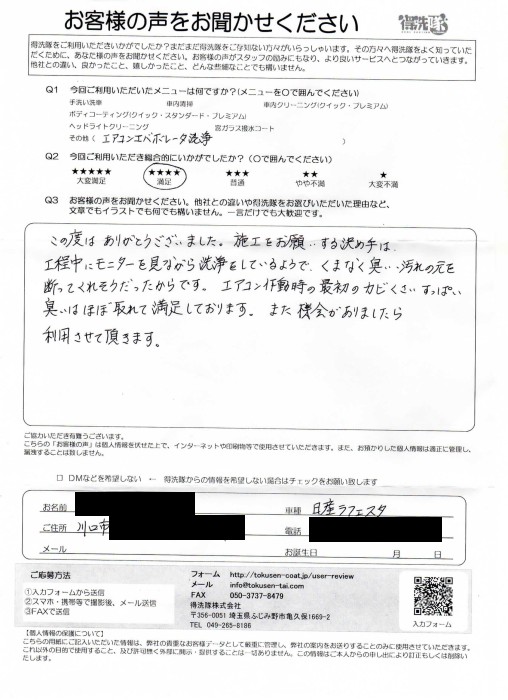 お客様の声をお聞かせください
得洗隊
得洗隊をご利用いただきいかがでしたか?まだまだ得洗隊をご存知ない方々がいらっしゃいます。その方々へ得洗隊をよく知っていた
だくために、あなた様の声をお聞かせください。お客様の声がスタッフの励みにもなり、より良いサービスへとつながっていきます。
他社との違い、良かったこと、嬉しかったこと、どんな些細なことでも構いません。
Q1 今回ご利用いただいたメニューは何ですか?(メニューを〇で囲んでください)
手洗い洗車 車内清掃 車内クリーニング(クイック・プレミアム)
ボディコーティング(クイック・スタンダード・プレミアム)
ヘッドライトクリーニング 窓ガラス撥水コート
その他( エアコンエバポレータ洗浄 )
Q2 今回ご利用いただき総合的にいかがでしたか?(〇で囲んでください)
★★★★★ ★★★★ ★★★ ★★ ★
大変満足 満足 普通 やや不満 大変不満
Q3 お客様の声をお聞かせください。他社との違いや得洗隊をお選びいただいた理由など、
文章でもイラストでも何でも構いません。一言だけでも大歓迎です。
この度は ありがとうございました。施工をお願いする決め手は、
工程中にモニターを見ながら洗浄をしているようで、くまなく臭い・汚れの元を
断ってくれそうだったからです。エアコン作動時の最初のカビくさい、すっぱい
臭いはほぼ取れて満足しております。また機会がありましたら
利用させて頂きます。
ご協力いただき有難うございます。
こちらの「お客様の声」は個人情報を伏せた上で、インターネットや印刷物等で使用させていただきます。また、お預かりした個人情報は適正に管理し、
漏洩することは致しません。
□ DMなどを希望しない ← 得洗隊からの情報を希望しない場合はチェックをお願い致します
お名前 車種 日産ラフェスタ
ご住所 川口市 電話
メール お誕生日 月 日
ご応募方法
①入力フォームから送信
②スマホ・携帯等で撮影後、メール送信
③FAXで送信
フォーム http://tokusen-coat.jp/user-review
メール info@tokusen-tai.com
FAX 050-3737-8479
得洗隊株式会社
〒356-0051 埼玉県ふじみ野市亀久保1669-2
TEL 049-265-8186
入力フォーム
【個人情報の保護について】
こちらの用紙にご記入いただいた情報は、弊社の貴重なお客様データとして厳重に管理し、弊社の案内をお送りすることのみに使用させていただきます。
これ以外の目的で使用すること、及び許可無く外部に開示・提供することは一切ありません。この情報はご本人からの申し出により訂正もしくは削除いた
します。